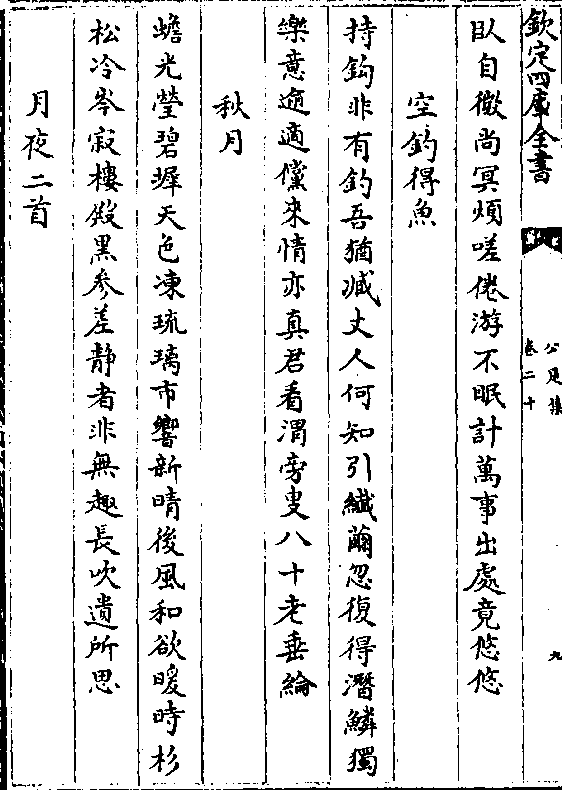 欽定四庫全書
公是集
卷二十
九
臥自徵尚冥煩嗟倦游不眠計萬事出處竟悠悠
空釣得魚
持鈎非有釣吾猶臧丈人何知引纖繭忽復得潛鱗獨
樂意逾適儻來情亦真君看渭旁叟八十老垂綸
秋月
蟾光瑩碧墀天色凍琉璃市響新晴後風和欲暖時杉
松冷岑寂樓殿黑參差静者非無趣長吹遺所思
月夜二首